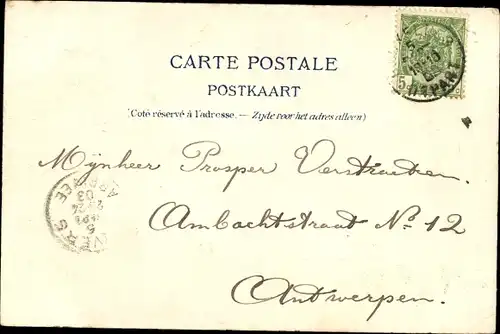 CARTE POSTALE
POSTKAART
(Coté réservé à l'adresse. — Zijde voor het adres alleen)
5
DEPART
Mynheer Prosper Verstraeten.
Ambachtstraat No. 12
Antwerpen.
ARRIVEE
03
5